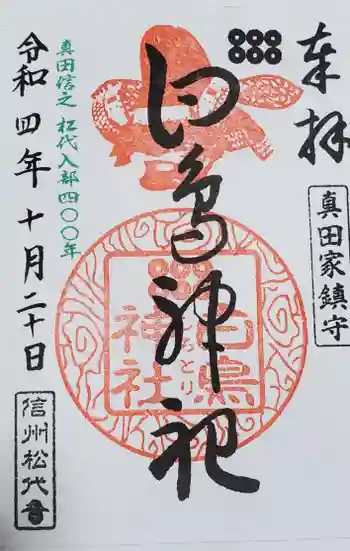 奉拝
真田家鎮守
白鳥神祀
白鳥
しらとり
神社
真田信之 松代入部四〇〇年
令和四年十月二十日
信州松代